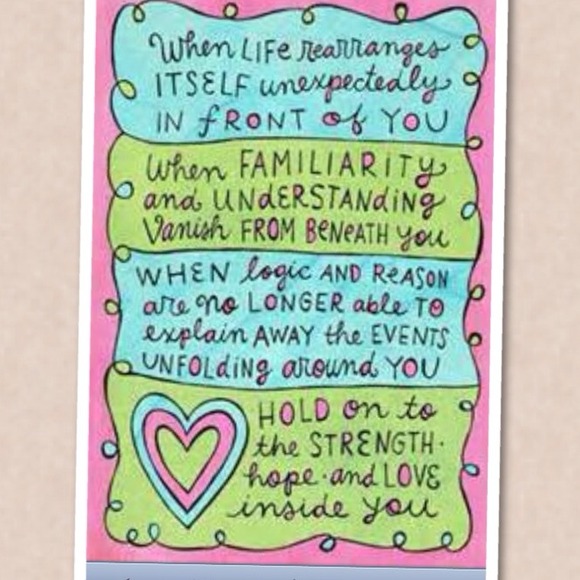 When LIFE rearranges
ITSELF unexpectedly
IN fRONT of YOU
When FAMILIARITy
and UNdERSTANdiNg
Vanish FROM BENEATH you
WHEN logic AND REASON
are no LONGER able TO
explain AWAY the EVENTS
UNFOLding around YOU
HOLD on to
the STRENGTH·
hope·and LOVE
inside you